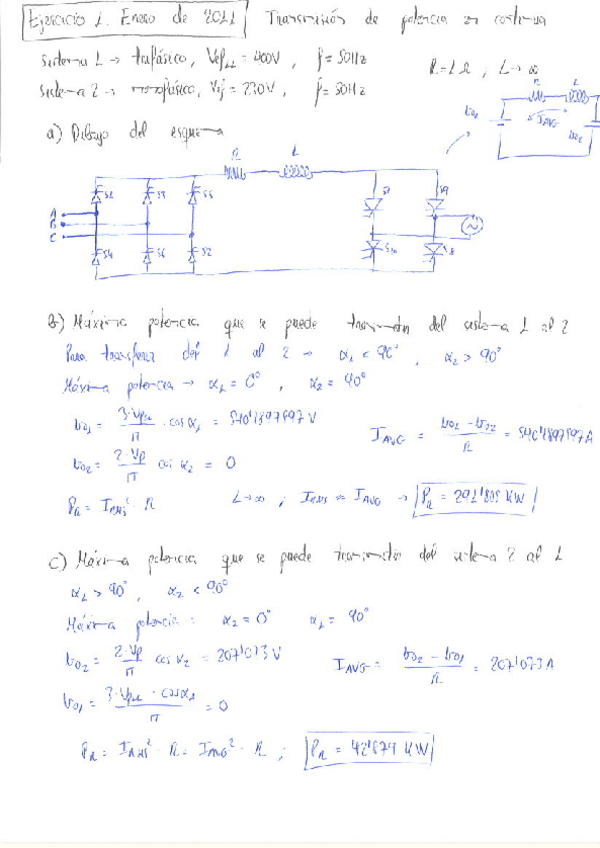 Ejercicio 1. Enero de 2011 Transmisión de potencia en continua
Sistema 1 → trifásico, Vef_LL = 400V, f = 50Hz
R = 1Ω ; L → ∞
Sistema 2 → monofásico, Vef = 230V, f = 50Hz
R L
I AVG
a) Dibujo del esquema
R L
S1 S3 S5
S7 S9
A
B
C
S4 S6 S2
S10 S8
b) Máxima potencia que se puede transmitir del sistema 1 al 2
Para transferir del 1 al 2 → α1 < 90°, α2 > 90°
Máxima potencia → α1 = 0°, α2 = 90°
Vo1 = 3·VpLL / π · cos α1 = 540'1897597 V
I AVG = (Vo1 - Vo2) / R = 540'1897597 A
Vo2 = 2·Vp / π cos α2 = 0
PR = I RMS² · R L → ∞ ; I RMS ≈ I AVG → PR = 291'805 KW
c) Máxima potencia que se puede transmitir del sistema 2 al 1
α1 > 90°, α2 < 90°
Máxima potencia: α2 = 0° α1 = 90°
Vo2 = 2·Vp / π cos α2 = 207'073 V
I AVG = (Vo2 - Vo1) / R = 207'073 A
Vo1 = 3·VpLL · cos α1 / π = 0
PR = I RMS² · R = I AVG² · R ; PR = 42'879 KW